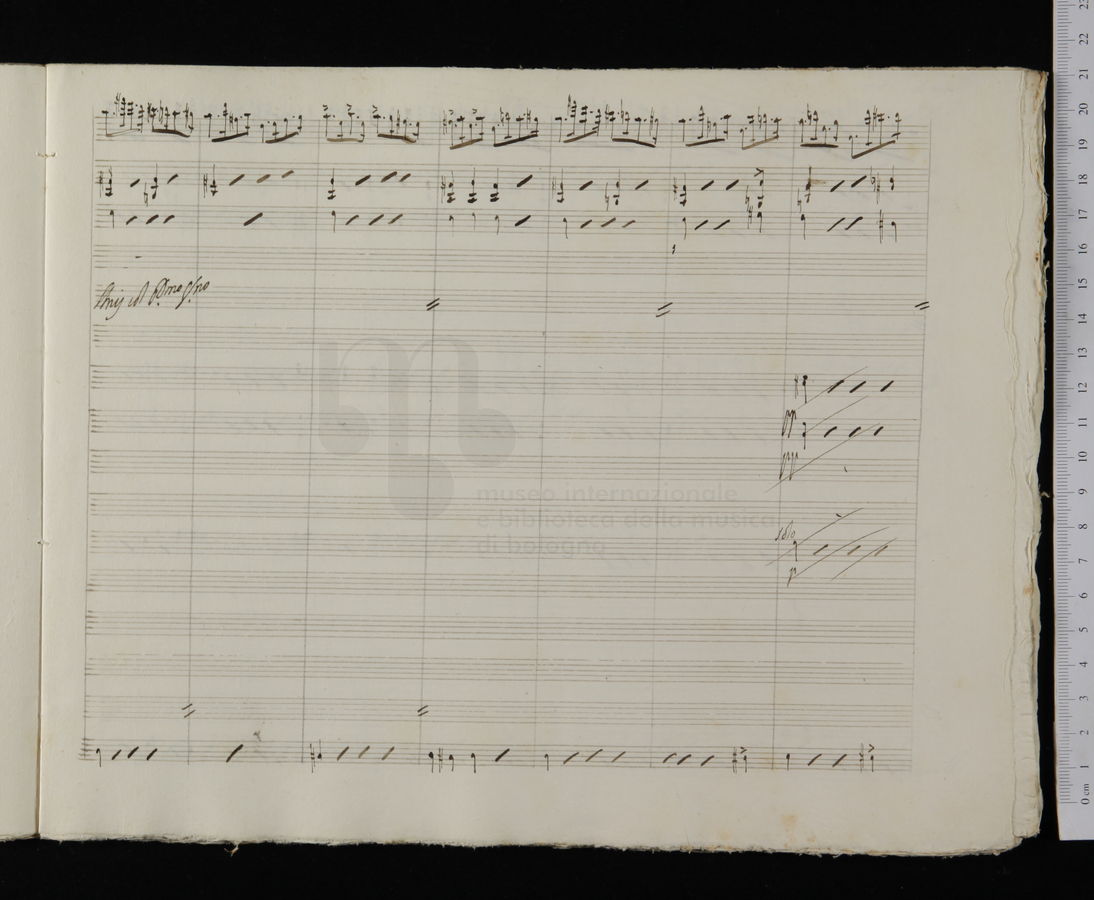 museo internazionale
e biblioteca della musica
di bologna
solo
23
22
21
20
19
18
17
16
15
14
13
12
11
10
9
8
7
6
5
4
3
2
1
0 cm